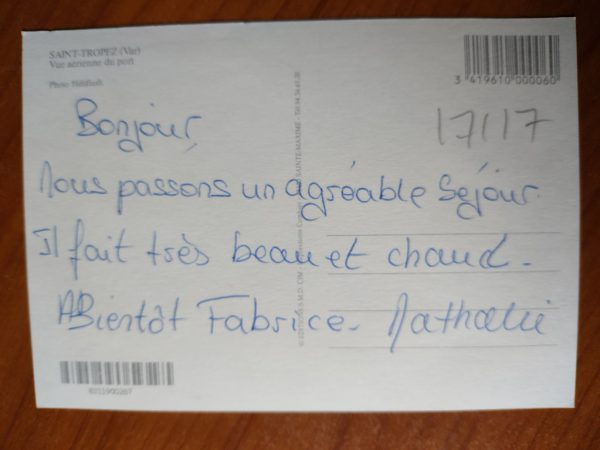 SAINT-TROPEZ (Var)
Vue aérienne du port
3 419610 000060
17/17
Bonjour,
Nous passons un agréable séjour.
Il fait très beau et chaud.
A Bientôt Fabrice. Nathalie